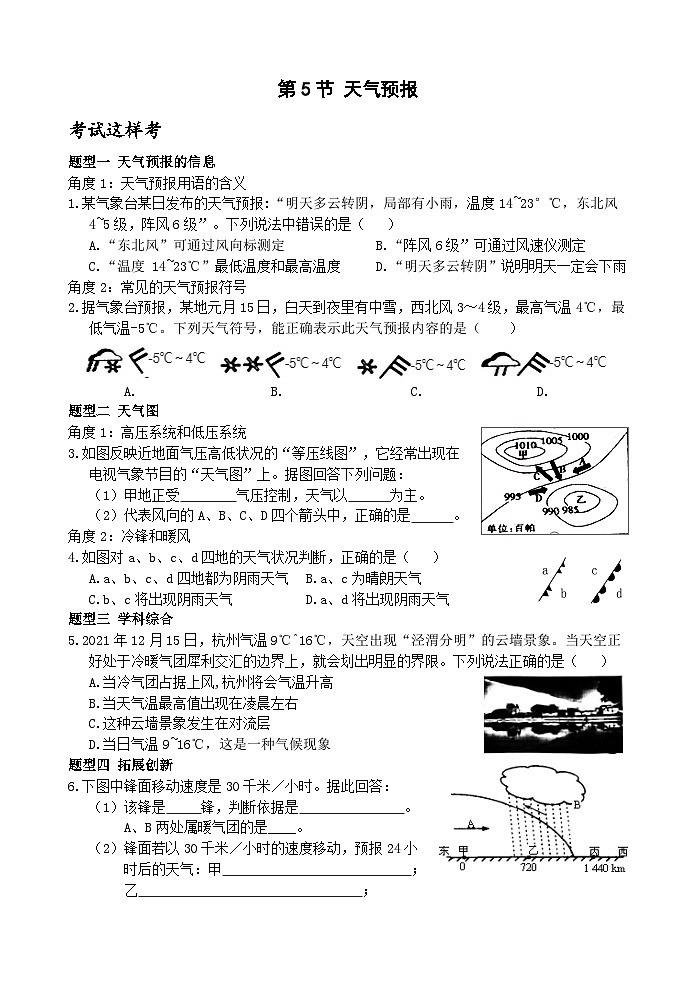 第5节 天气预报
考试这样考
题型一 天气预报的信息
角度1：天气预报用语的含义
1.某气象台某日发布的天气预报:“明天多云转阴,局部有小雨,温度14~23°℃,东北风
4~5级,阵风6级”。下列说法中错误的是（ ）
A.“东北风”可通过风向标测定 B.“阵风6级”可通过风速仪测定
C.“温度 14~23℃”最低温度和最高温度 D.“明天多云转阴”说明明天一定会下雨
角度2：常见的天气预报符号
2.据气象台预报,某地元月15日,白天到夜里有中雪,西北风3～4级,最高气温4℃,最
低气温-5℃。下列天气符号,能正确表示此天气预报内容的是（ ）
-5℃～4℃ -5℃～4℃ -5℃～4℃ -5℃～4℃
A. B. C. D.
题型二 天气图
角度1：高压系统和低压系统
3.如图反映近地面气压高低状况的“等压线图”,它经常出现在
电视气象节目的“天气图”上。据图回答下列问题:
（1）甲地正受________气压控制,天气以______为主。
（2）代表风向的A、B、C、D四个箭头中,正确的是______。
1010 1005 1000
甲
C B A
995 D 乙
990 985
单位:百帕
角度2：冷锋和暖风
4.如图对a、b、c、d四地的天气状况判断,正确的是（ ）
A.a、b、c、d四地都为阴雨天气 B.a、c为晴朗天气
C.b、c将出现阴雨天气 D.a、d将出现阴雨天气
a c
b d
题型三 学科综合
5.2021年12月15日,杭州气温9℃~16℃,天空出现“泾渭分明”的云墙景象。当天空正
好处于冷暖气团犀利交汇的边界上,就会划出明显的界限。下列说法正确的是（ ）
A.当冷气团占据上风,杭州将会气温升高
B.当天气温最高值出现在凌晨左右
C.这种云墙景象发生在对流层
D.当日气温9~16℃,这是一种气候现象
题型四 拓展创新
6.下图中锋面移动速度是30千米／小时。据此回答:
（1）该锋是_____锋,判断依据是_______________。
A、B两处属暖气团的是____。
（2）锋面若以30千米／小时的速度移动,预报24小
时后的天气:甲___________________________;
乙________________________________;
B
A
东 甲 乙 丙 西
0 720 1 440 km